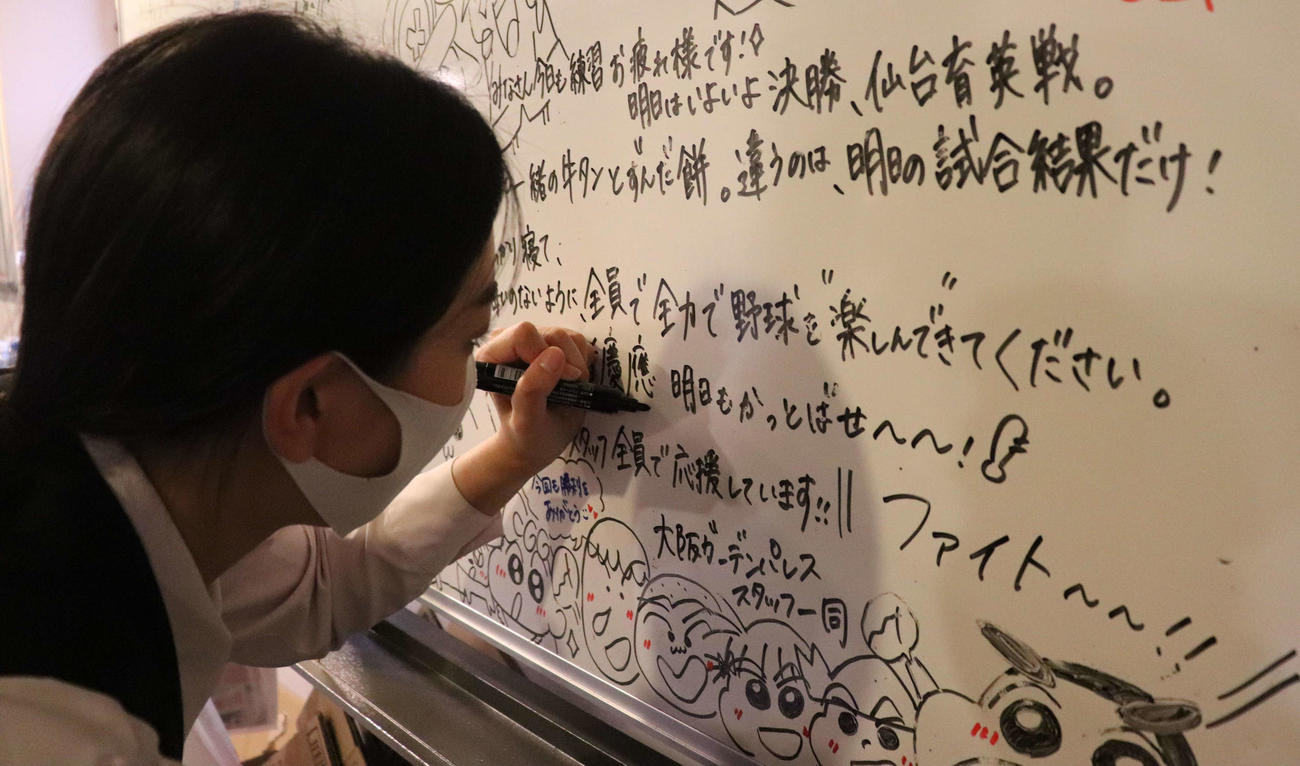 みなさん今日も練習お疲れ様です!
明日はいよいよ決勝、仙台育英戦。
一緒の牛タンとずんだ餅。違うのは、明日の試合結果だけ!
寝て、
のないように、全員で全力で野球を"楽しんで"きてください。
慶應 明日もかっとばせ〜〜!
スタッフ全員で応援しています!!
ファイト〜〜!!
今回も勝利を
ありがとう
大阪ガーデンパレス
スタッフ一同